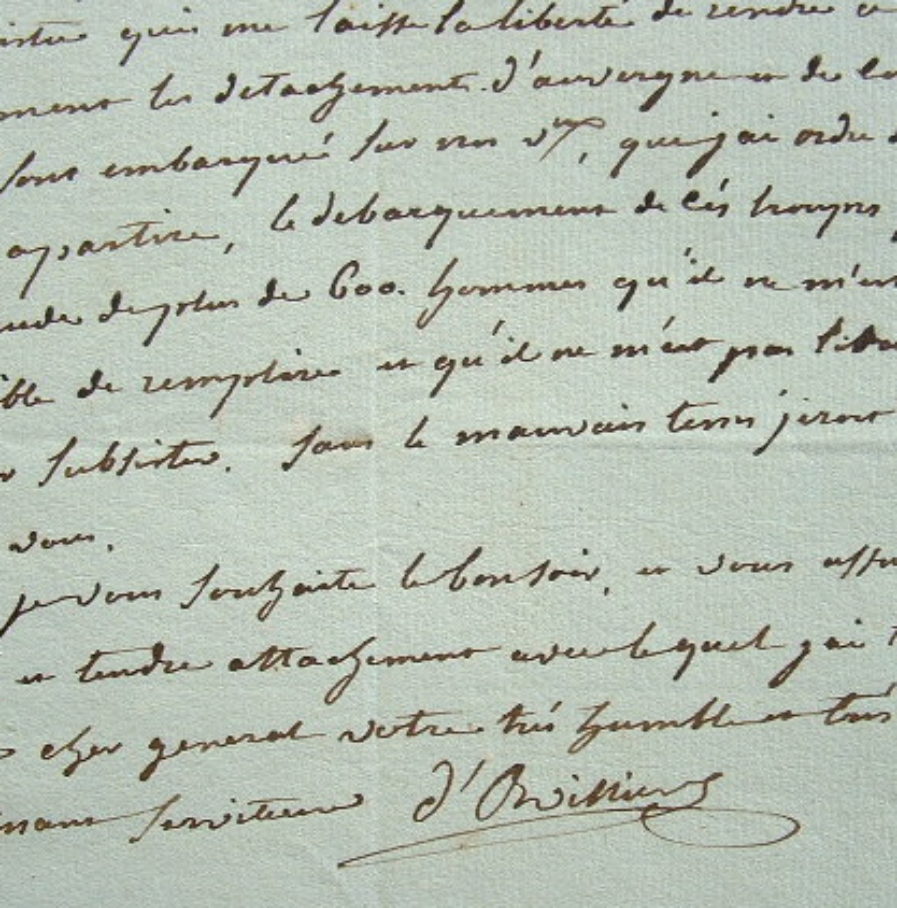 qui me laisse la liberté de rendre
les detachements d'auvergne et de
sont embarqué sur nos vx, que j'ai ordre
apartire, le debarquement de cés troupes
de plus de 600. hommes qu'il ne m'est
ible de remplire et qu'il ne m'est pas
subsister. sans le mauvais tems j'irois
vous.
je vous souhaite le bonsoir, et vous assu
et tendre attachement avec lequel j'ai
cher general votre trés humble et trés
issant serviteur d'Orvilliers